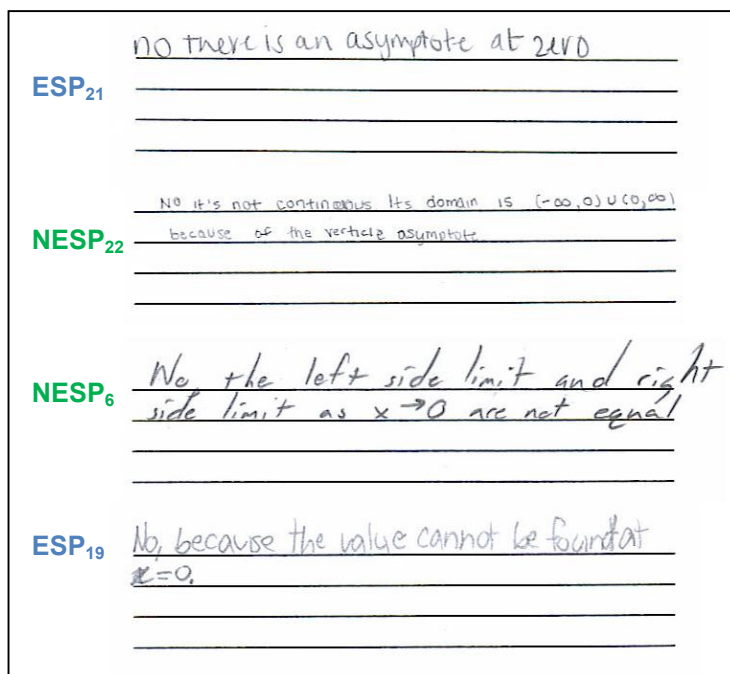 no there is an asymptote at zero
ESP21
No it's not continuous Its domain is (-∞,0)∪(0,∞)
because of the verticle asymptote
NESP22
No, the left side limit and right
NESP6
side limit as x→0 are not equal
ESP19
No, because the value cannot be found at
x=0.